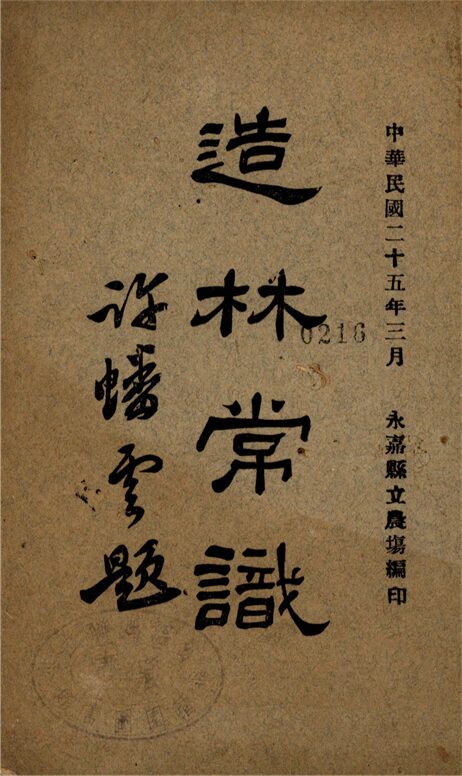 中華民國二十五年三月　永嘉縣立農場編印
造林常識
許蟠雲題
0216